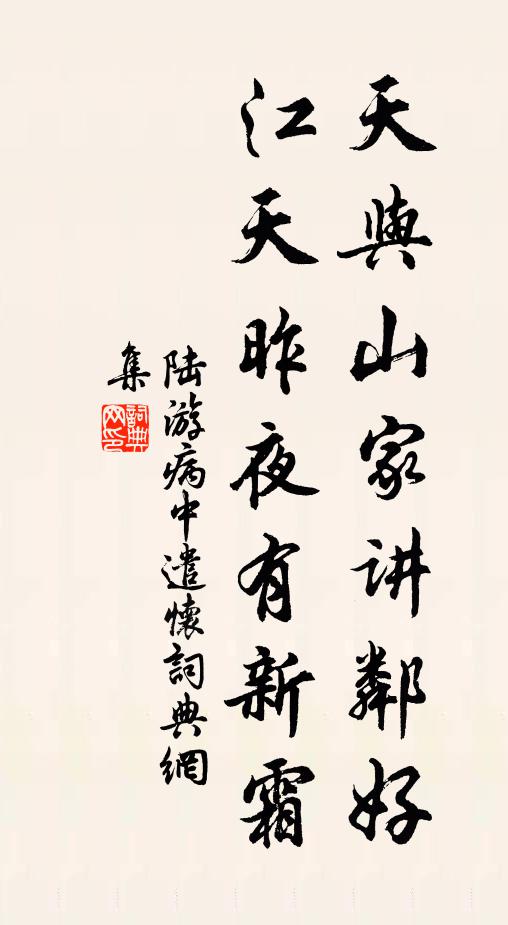 天與山家讲鄰好
江天昨夜有新霜
陆游病中遣懷詞典網
集
詞典
网印